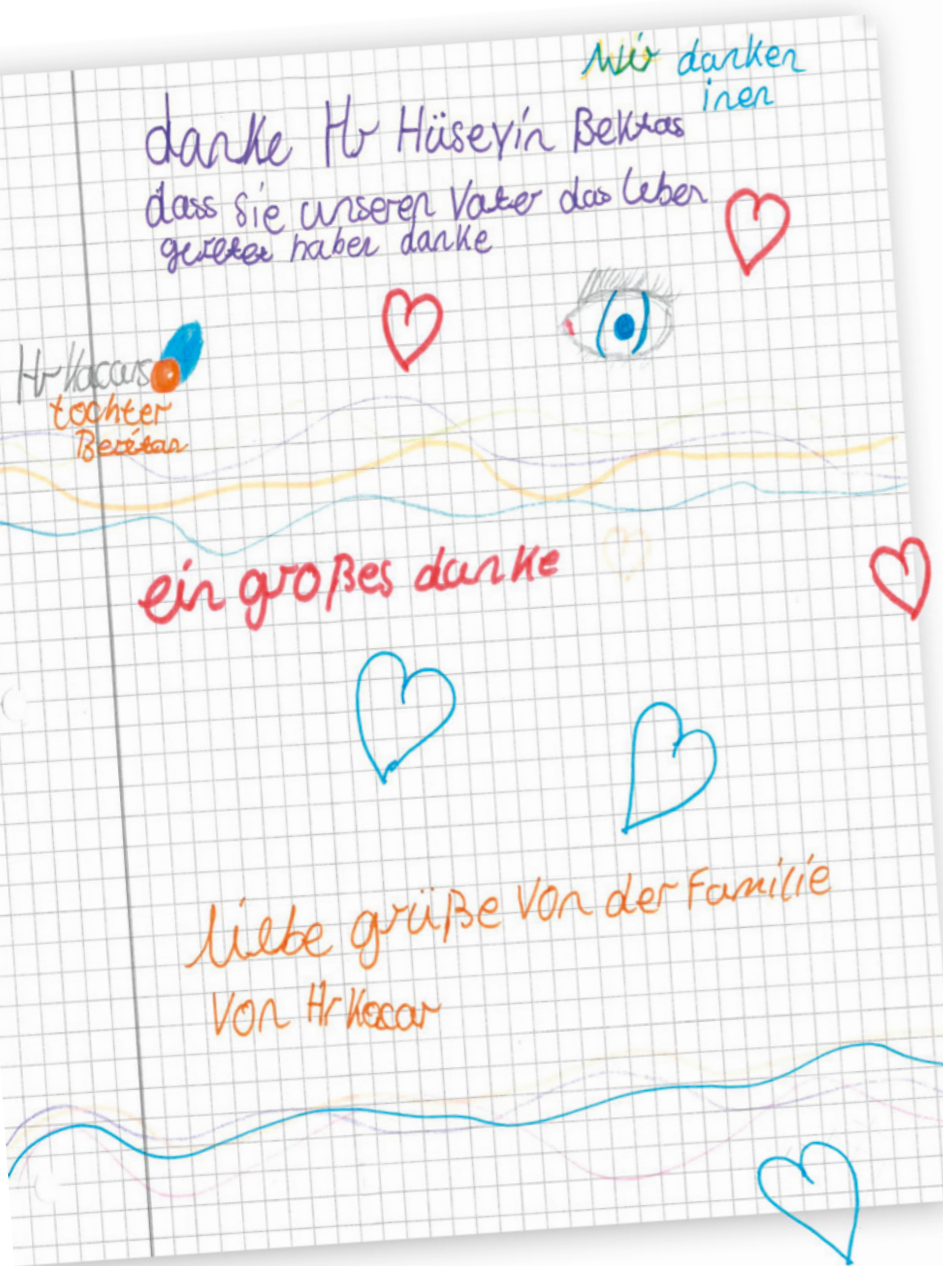 Wir danken
inen
danke Hr Hüseyin Bektas
dass sie unseren Vater das leben
gereter haben danke
Hr Kocars
tochter
Beritan
ein großes danke
liebe grüße von der Familie
Von Hr Kocar